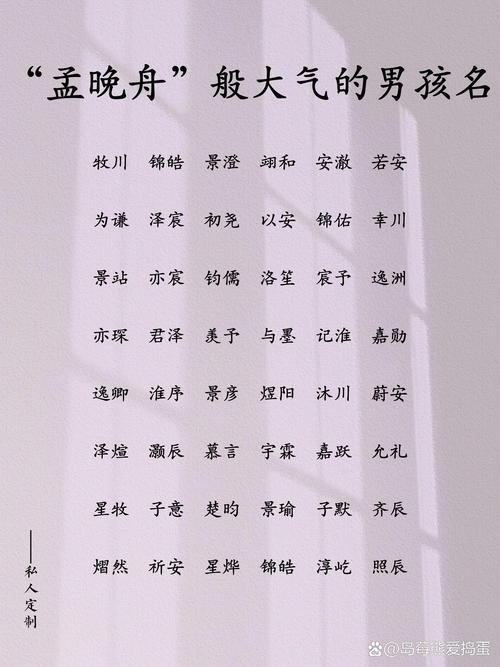 “孟晚舟”般大气的男孩名
牧川 锦皓 景澄 翊和 安澈 若安
为谦 泽宸 初尧 以安 锦佑 幸川
景站 亦宸 钧儒 洛笙 宸予 逸洲
亦琛 君泽 羡予 与墨 记淮 嘉勋
逸卿 淮序 景彦 煜阳 沐川 蔚安
泽煊 灏辰 慕言 宇霖 嘉跃 允礼
星牧 子意 楚昀 景瑜 子默 齐辰
熠然 祈安 星烨 锦皓 淳屹 照辰
——私人定制
百家号@岛莓熊爱捣蛋